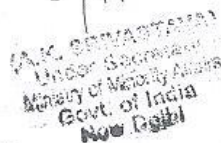 (A.K. SRIVASTAVA)
Under Secretary
Ministry of Minority Affairs
Govt. of India
New Delhi